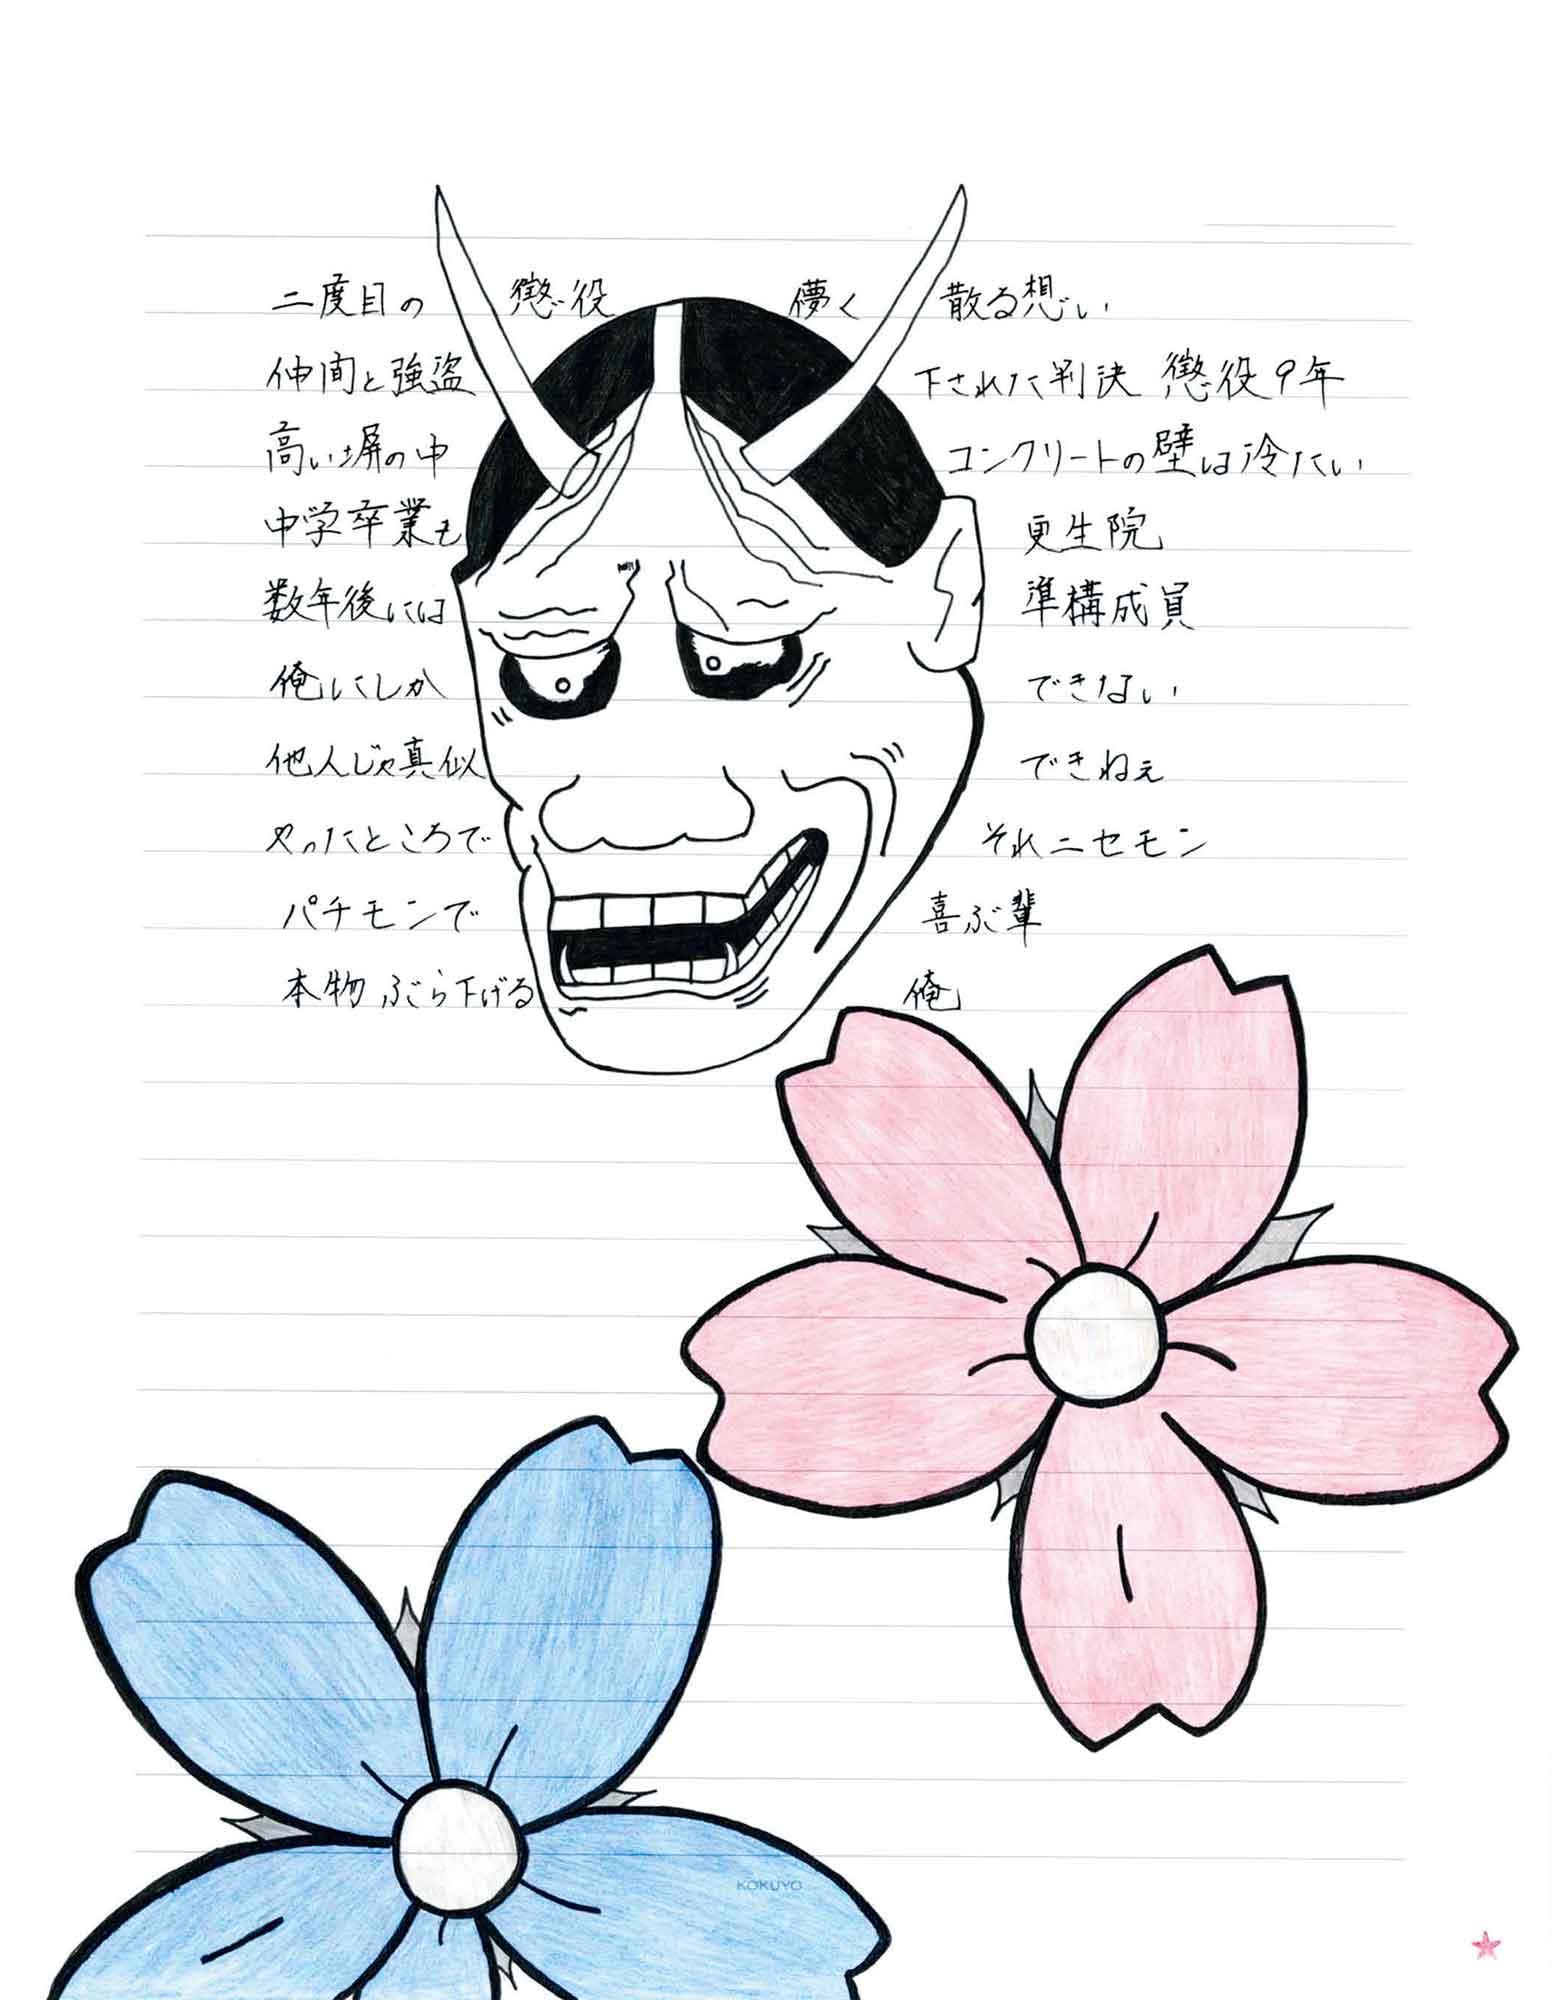 二度目の 懲役 儚く 散る想い
仲間と強盗 下された判決 懲役9年
高い塀の中 コンクリートの壁は冷たい
中学卒業も 更生院
数年後には 準構成員
俺にしか できない
他人じゃ真似 できねぇ
やったところで それニセモン
パチモンで 喜ぶ輩
本物ぶら下げる 俺
KOKUYO